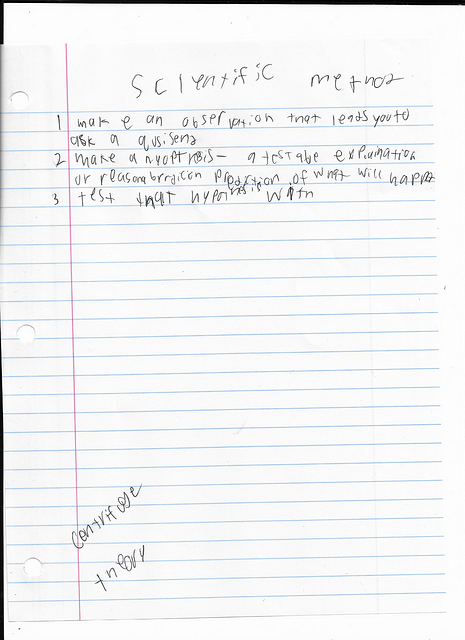 Scientific method
1 make an observation that leads you to
ask a qusiens
2 make a hyopthisis - a testabe explamation
or reasonabrdicon prediction of what will happen
3 test that hypothisis with
centrifuge
theory